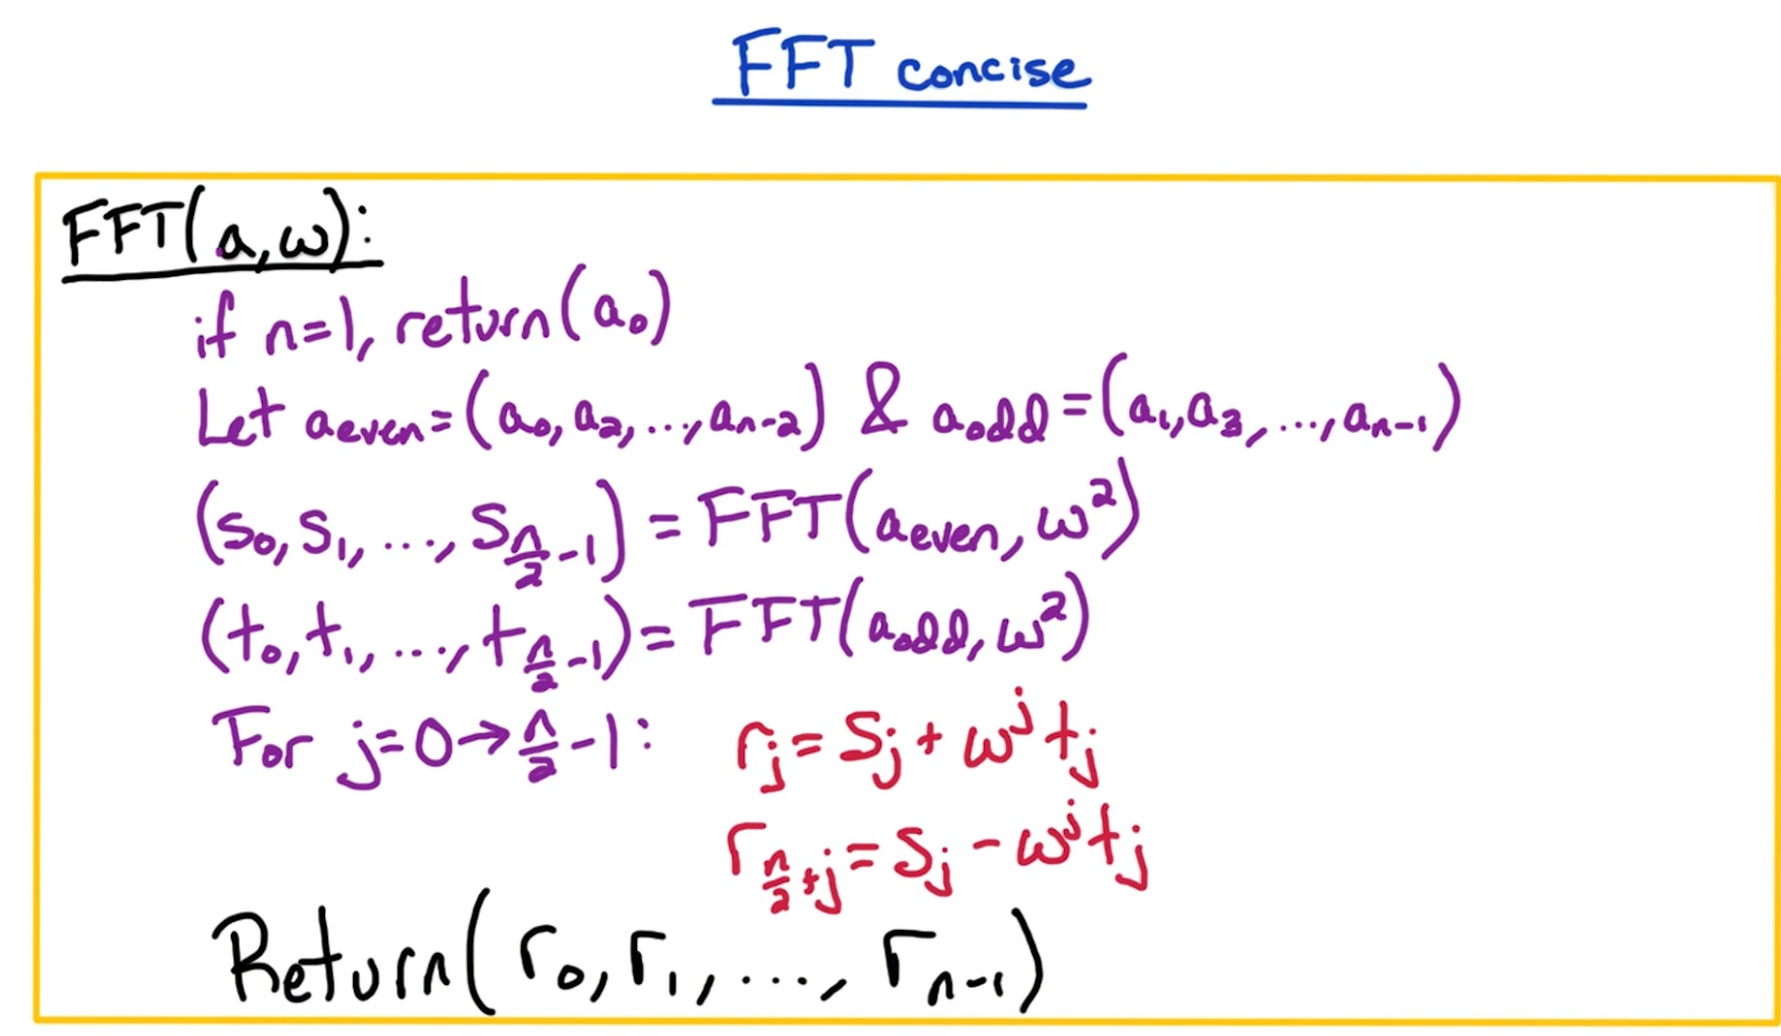 FFT concise
FFT(a,ω):
if n=1, return(a₀)
Let a_even=(a₀,a₂,...,a_{n-2}) & a_odd=(a₁,a₃,...,a_{n-1})
(s₀,s₁,...,s_{n/2-1}) = FFT(a_even,ω²)
(t₀,t₁,...,t_{n/2-1}) = FFT(a_odd,ω²)
For j=0→n/2-1: r_j = s_j + ω^j t_j
r_{n/2+j} = s_j - ω^j t_j
Return(r₀,r₁,...,r_{n-1})